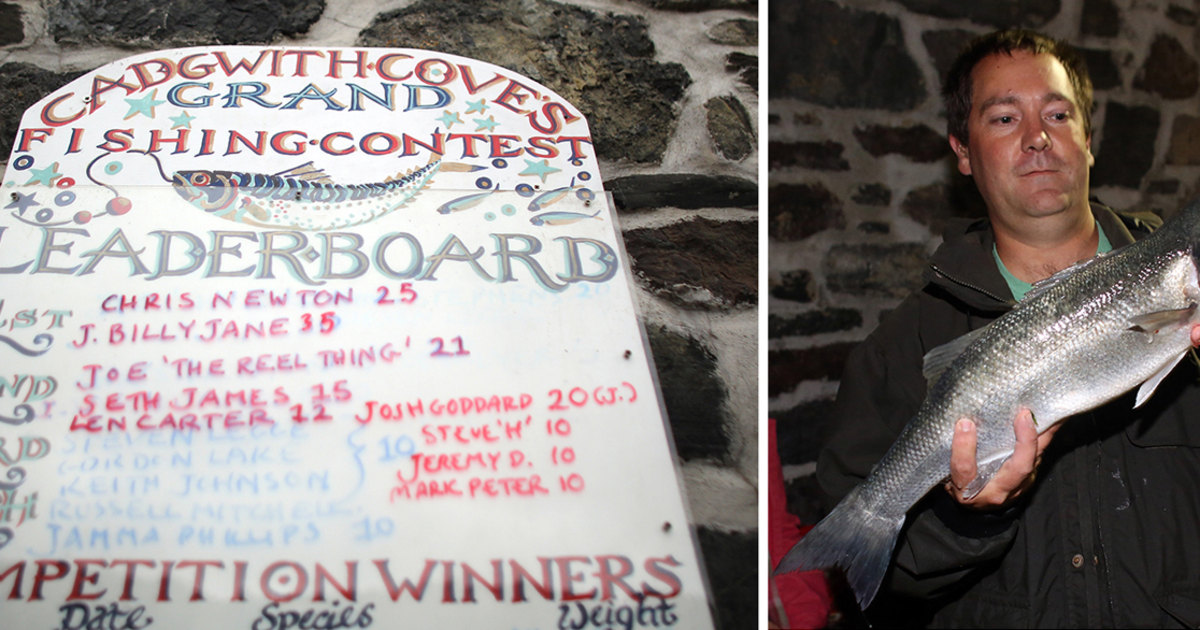 CADGWITH·COVE'S
GRAND
FISHING·CONTEST
LEADERBOARD
1ST
CHRIS NEWTON 25
J. BILLY JANE 35
JOE 'THE REEL THING' 21
SETH JAMES 15
LEN CARTER 12
JOSH GODDARD 20 (J.)
STEVE 'H' 10
JEREMY D. 10
MARK PETER 10
STEVEN LEGGE
GORDON LAKE
KEITH JOHNSON
10
RUSSELL MITCHELL
JAMMA PHILLIPS 10
MPETITION WINNERS
Date Species Weight